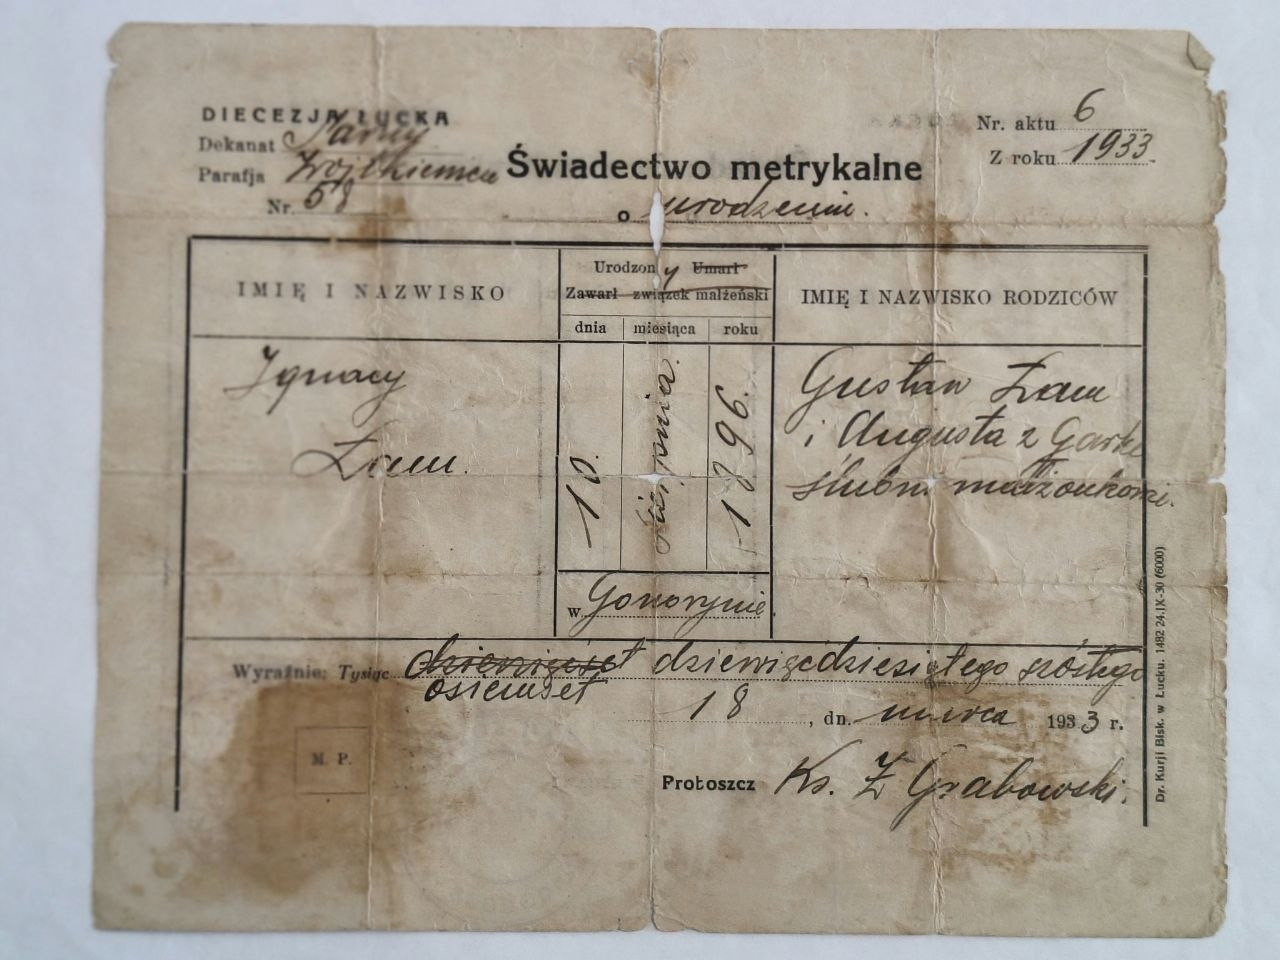 DIECEZJA ŁUCKA
Dekanat Sarny
Parafja
Nr. 58
Nr. aktu 6
Z roku 1933
Świadectwo metrykalne
o urodzeniu.
IMIĘ I NAZWISKO
Urodzony Umarł
Zawarł związek małżeński
dnia miesiąca roku
IMIĘ I NAZWISKO RODZICÓW
Ignacy
Zam.
10. sierpnia. 1896.
w
Gustaw Zam
i Augusta z
ślubni małżonkowie.
Wyraźnie: Tysiąc dziewięćset dziewięćdziesiątego szóstego
osiemset
18, dn. marca 1933 r.
M. P.
Proboszcz Ks. Z Grabowski.
Dr. Kurji Bisk. w Łucku. 1482 24.IX-30 (6000)